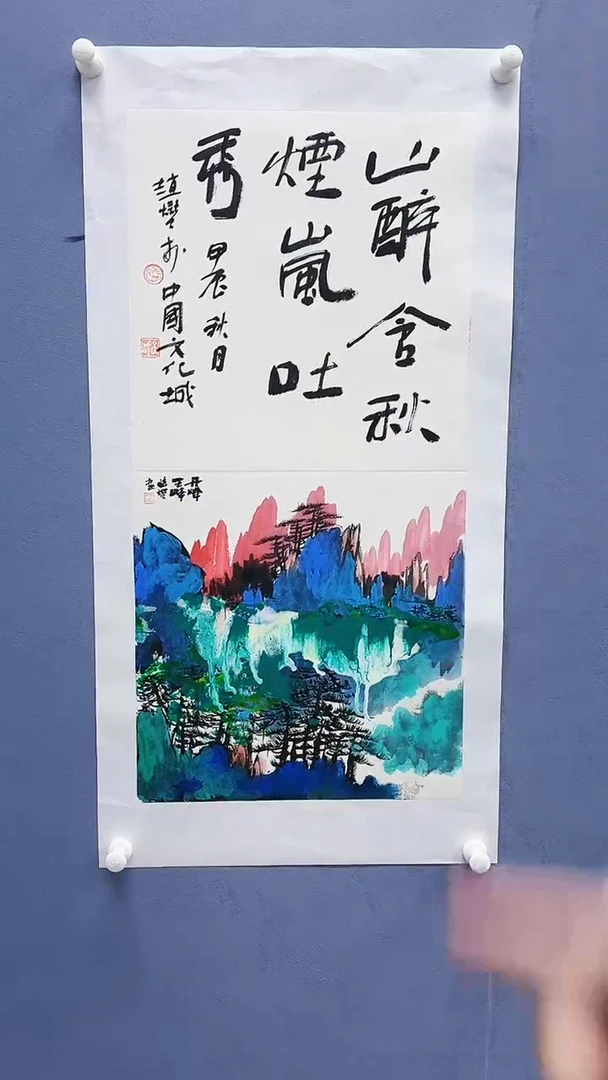 山醉含秋
煙嵐吐
秀
甲辰秋月
趙燮於中國文化城